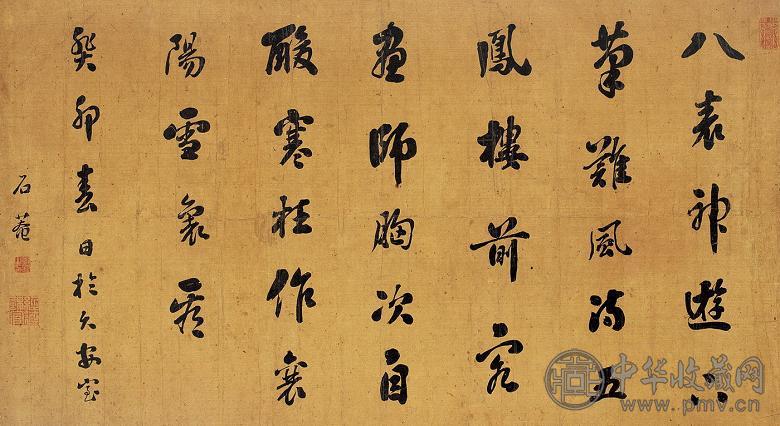 八表神遊下
筆難風五
鳳樓前客
畫師胸次自
酸寒枉作襄
陽雪裏看
癸卯春日於久安室
石菴
中华收藏网
www.pmv.cn